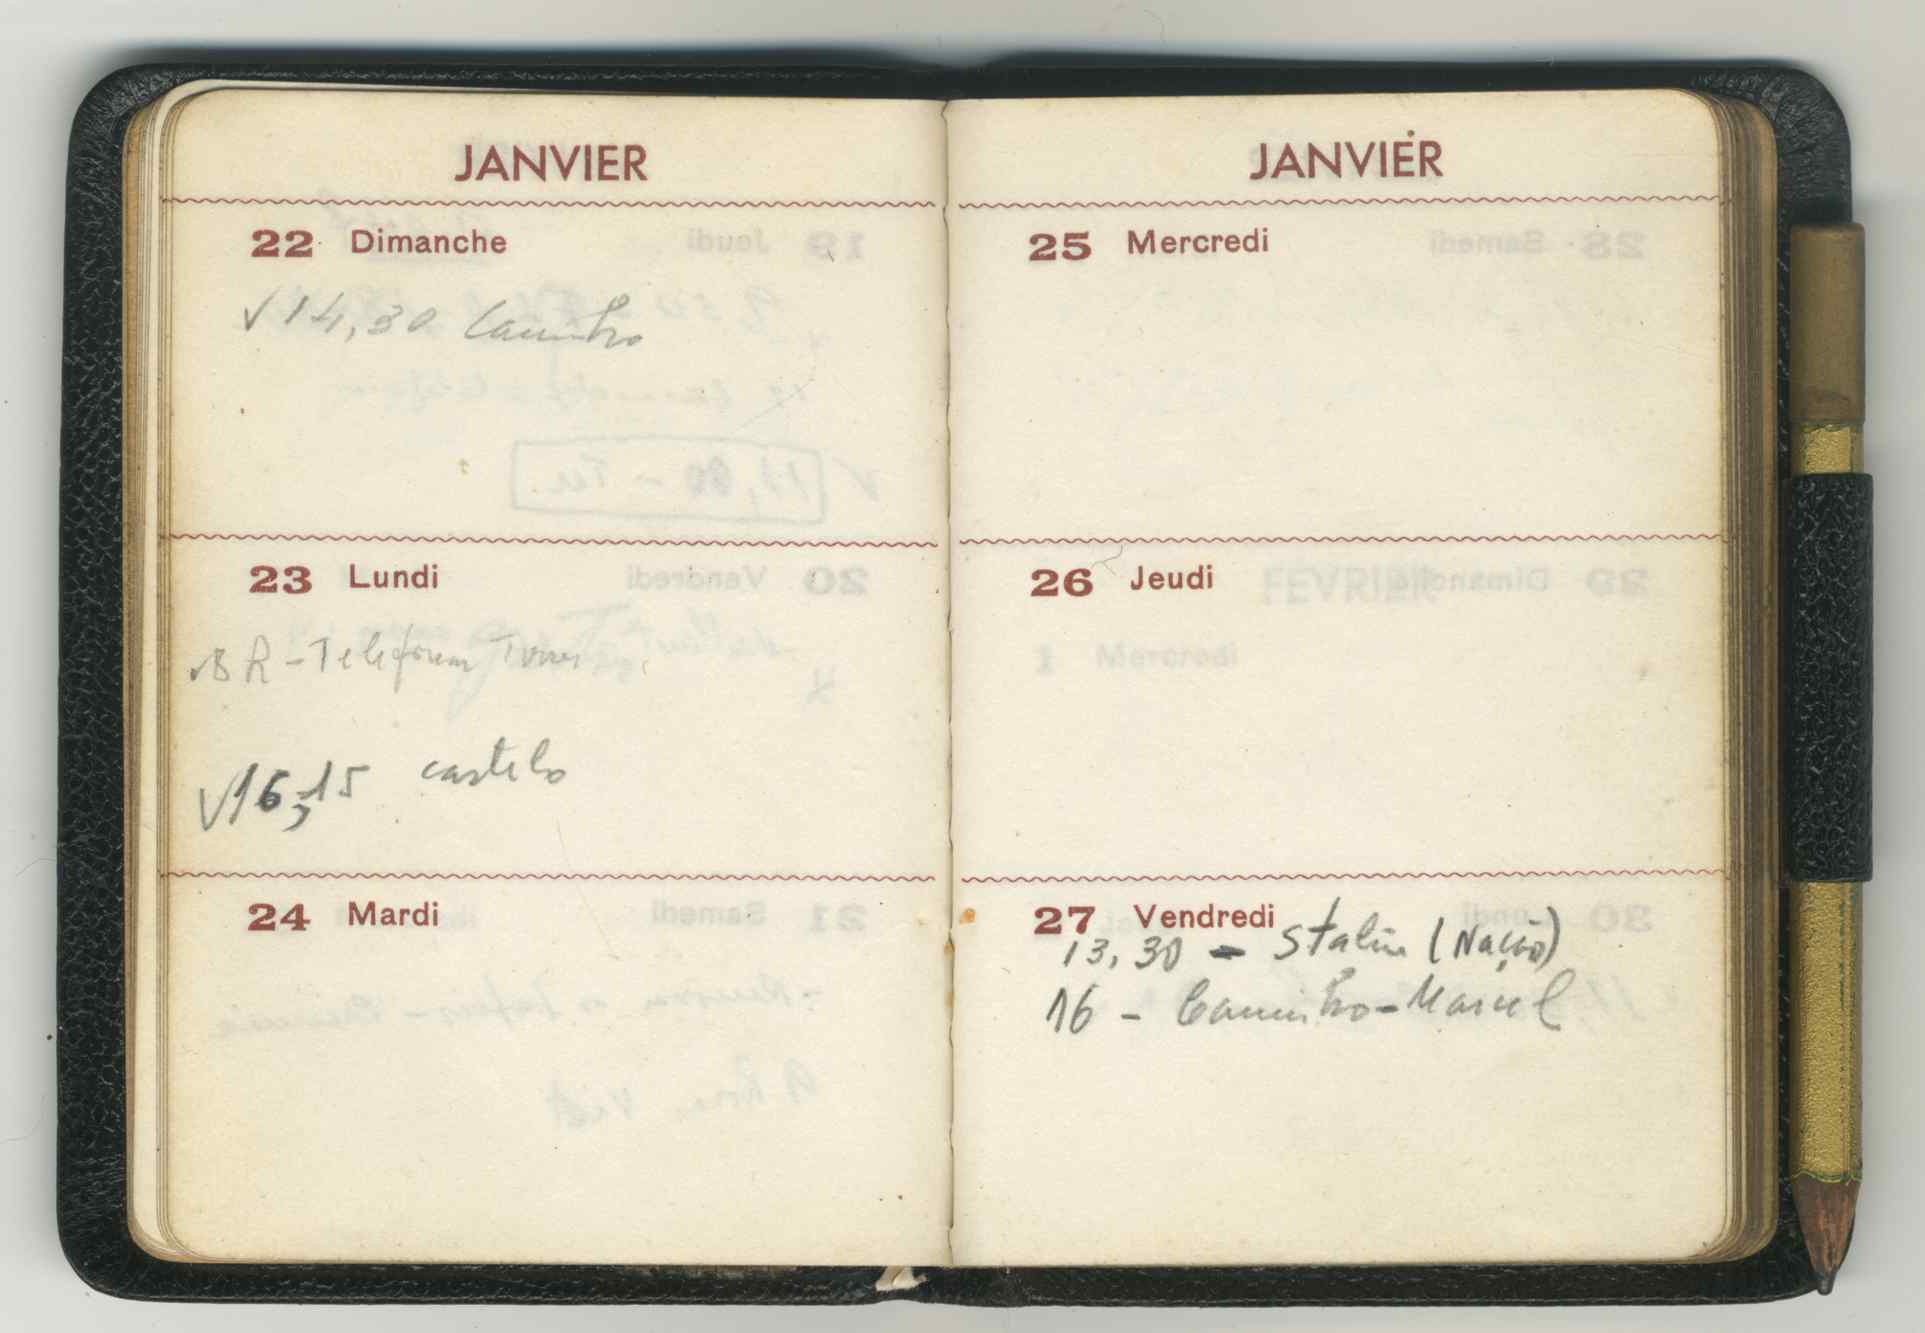 JANVIER
22 Dimanche
√14,30 Caminho
23 Lundi
R - Telefonem
√16,15 castelo
24 Mardi
JANVIER
25 Mercredi
26 Jeudi
FÉVRIER
1 Mercredi
27 Vendredi
13,30 - Stalin (Nação)
16 - Caminho - Marcel